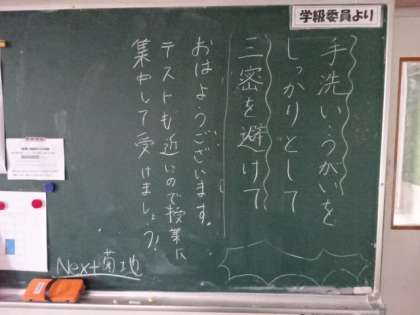 学級委員より
手洗い・うがいを
しっかりとして
三密を避けて
おはようございます。
テストも近いので授業に
集中して受けましょう!
Next菊地